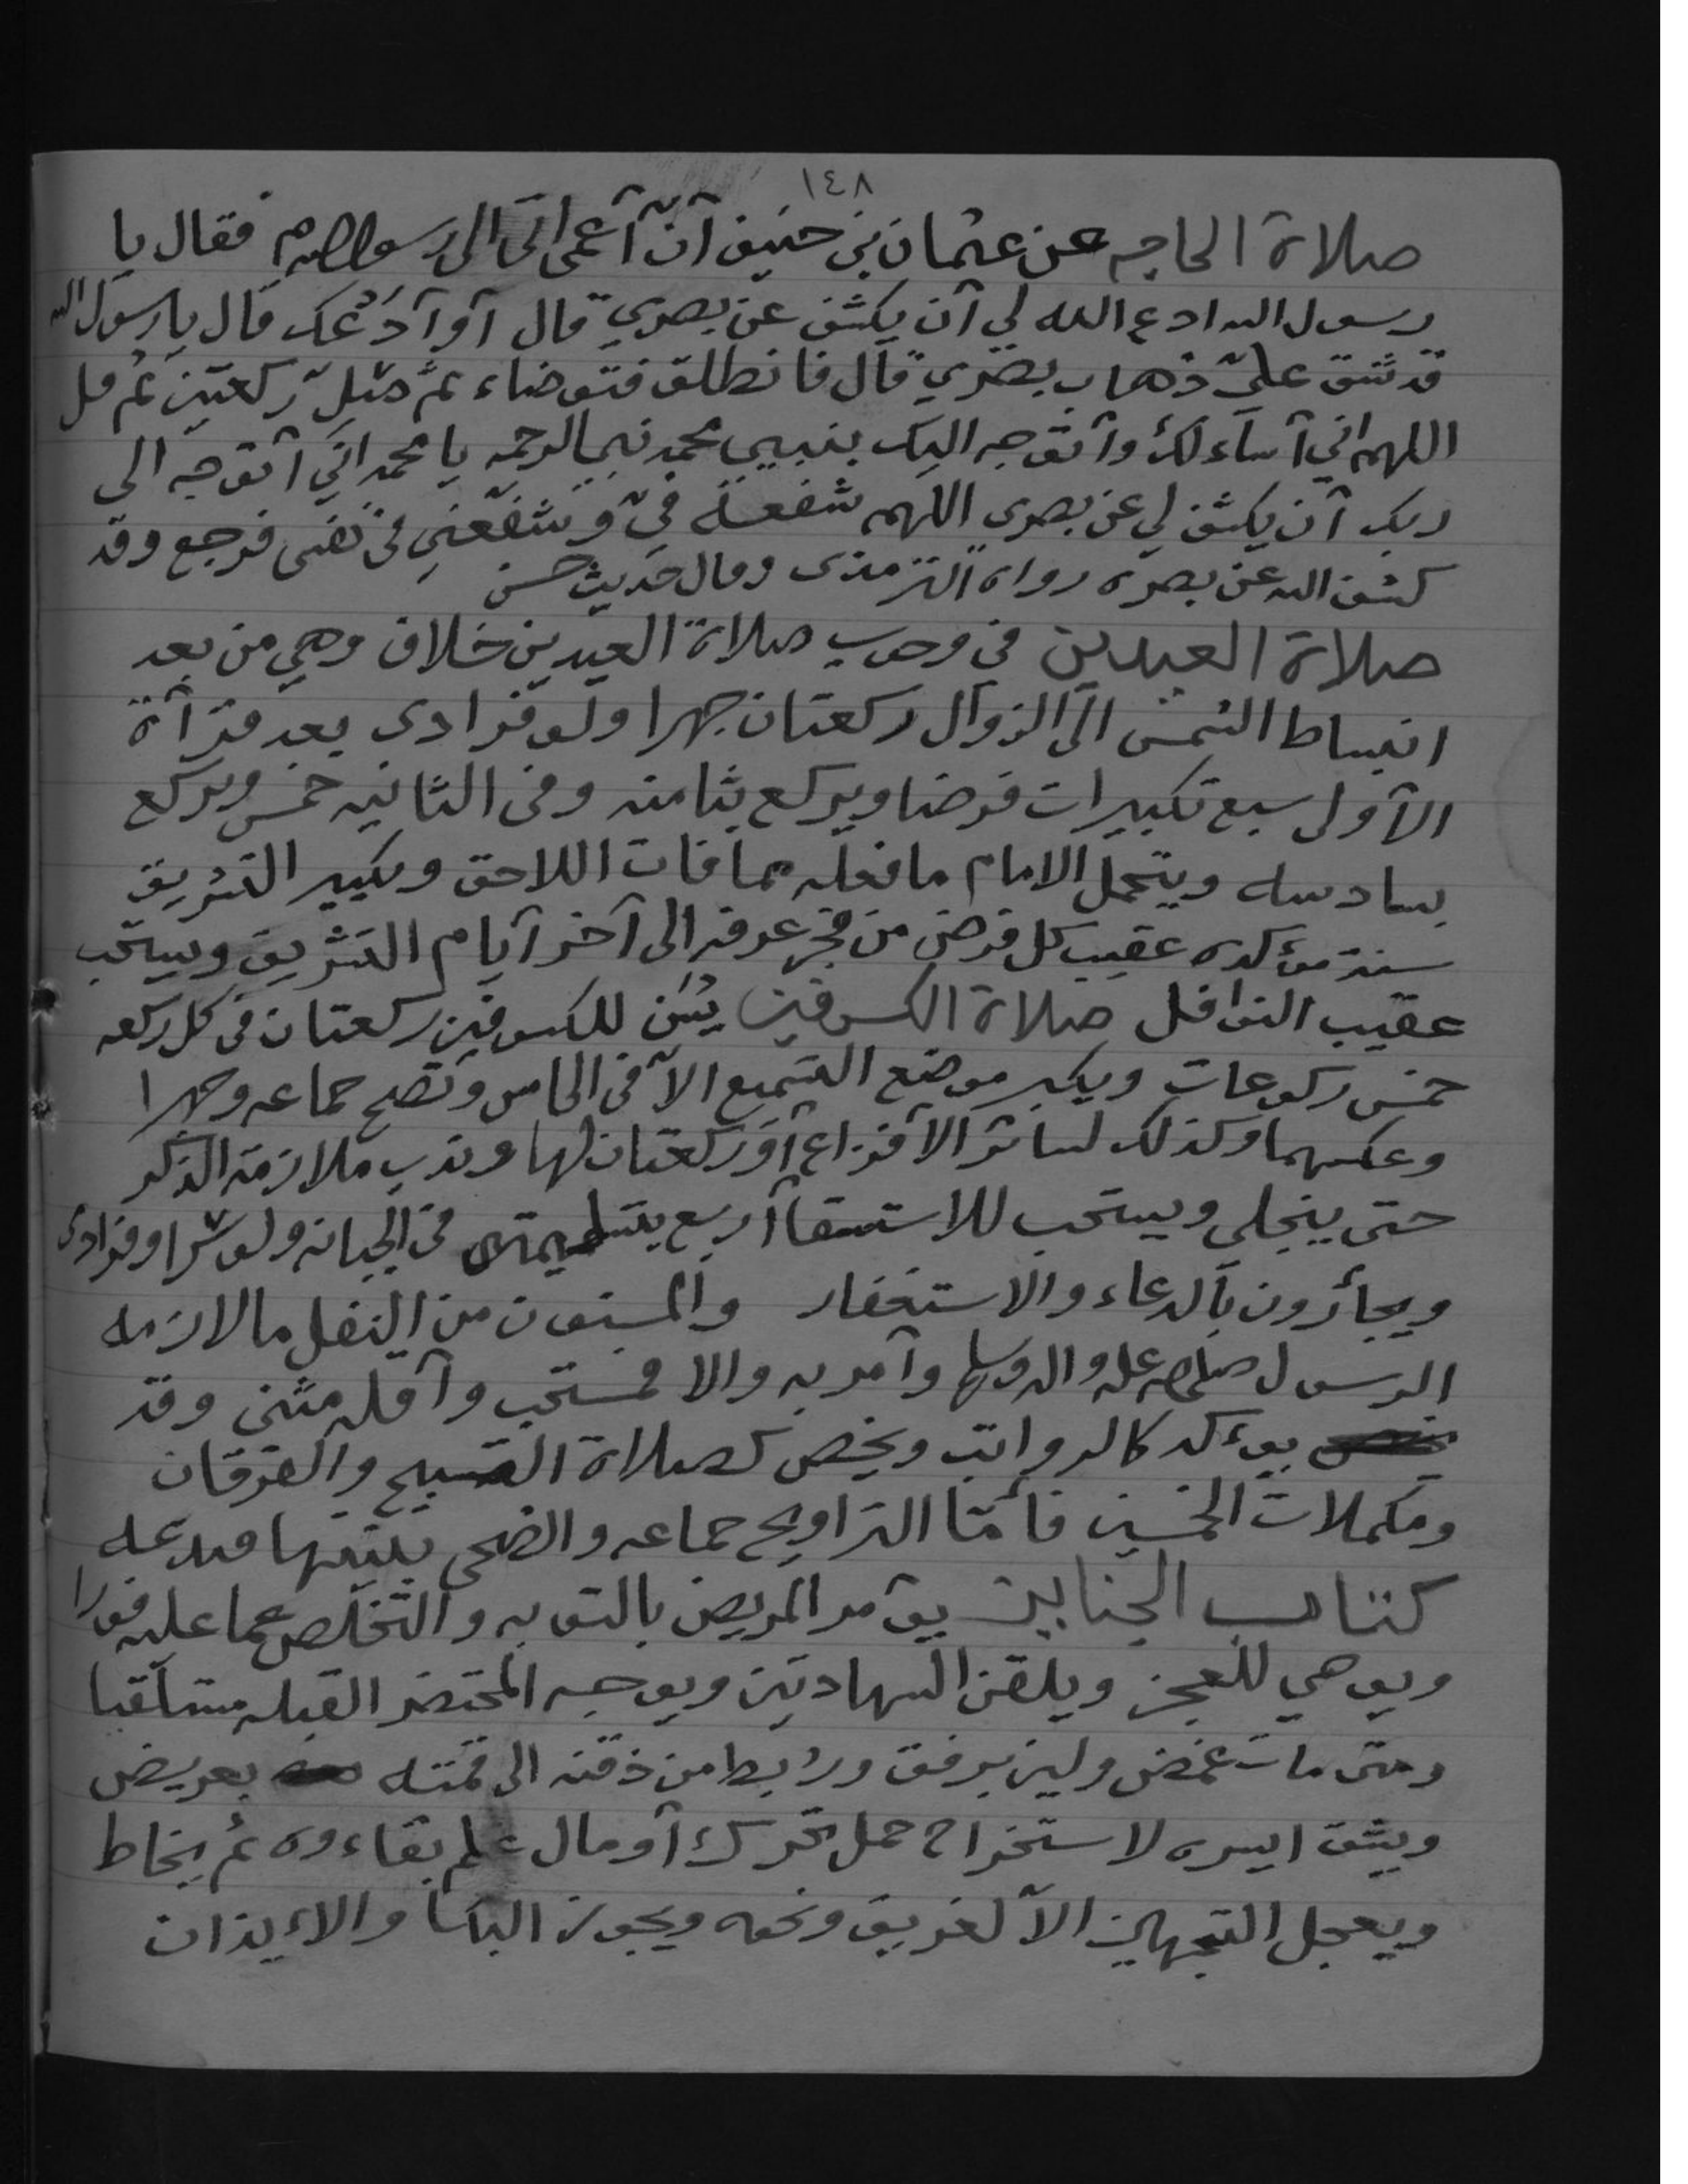 ١٤٨
صلاة الحاجه عن عثمان بن حنيف أنّ أعمى اتى الى رسول الله م فقال يا
رسول الله ادع الله لي أن يكشف عن بصري قال أو أدعك قال يا رسول الله
قد شق عليّ ذهاب بصري قال فانطلق فتوضاء ثم صل ركعتين ثم قل
اللهم اني أساءلك وأتوجه اليك بنبيي محمد نبي الرحمه يا محمد اني أتوجه الى
ربك أن يكشف لي عن بصري اللهم شفعه فيّ وشفعني في نفسى فرجع وقد
كشف الله عن بصره رواه الترمذى وقال حديث حسن
صلاة العيدين في وجوب صلاة العيدين خلاف وهي من بعد
انبساط الشمس الى الزوال ركعتان جهرا ولو فرادى بعد قرآأة
الأولى سبع تكبيرات فرضا ويركع بثامنه وفى الثانيه خمس ويركع
بسادسه ويتحمل الامام ما فعله مما فات اللاحق وتكبير التشريق
سنة مؤكده عقيب كل فرض من فجر عرفه الى آخر أيام التشريق ويستحب
عقيب النوافل صلاة الكسوفين يُسَن للكسوفين ركعتان فى كل ركعه
خمس ركوعات ويكبر موضع التسميع الاّ فى الخامس وتصح جماعه وجهرا
وعكسهما وكذلك لسائر الأفزاع أو ركعتان لها وندب ملازمة الذكر
حتى ينجلى ويستحب للاستسقاأ أربع بتسليمتين فى الجبانه ولو سرا وفرادى
ويجأرون بالدعاء والاستغفار والمسنون من النفل ما لازمه
الرسول صلى الله عليه واله وسلم وأمر به والا فمستحب وأقله مثنى وقد
يوءكد كالرواتب ويخص كصلاة التسبيح والفرقان
ومكملات الخمسين فأمّا التراويح جماعه والضحى بنيتها فبدعه
كتاب الجنايز يؤمر المريض بالتوبه والتخلص عما عليه فورا
ويوصي للعجز ويلقن الشهادتين ويوجه المحتضر القبله مستلقيا
ومتى مات غمض ولين برفق وربط من ذقنه الى قمته بعريض
ويشق ايسره لاستخراج حمل تحرك أو مال علم بقاءوه ثم يخاط
ويعجل التجهيز الاّ لغريق ونحوه ويجوز البكا والاءيذان